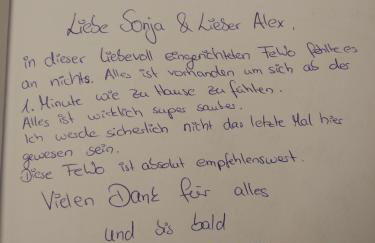 Liebe Sonja & Lieber Alex,
in dieser liebevoll eingerichteten FeWo fehlte es
an nichts. Alles ist vorhanden um sich ab der
1. Minute wie zu Hause zu fühlen.
Alles ist wirklich super sauber.
Ich werde sicherlich nicht das letzte Mal hier
gewesen sein.
Diese FeWo ist absolut empfehlenswert.
Vielen Dank für alles
und bis bald